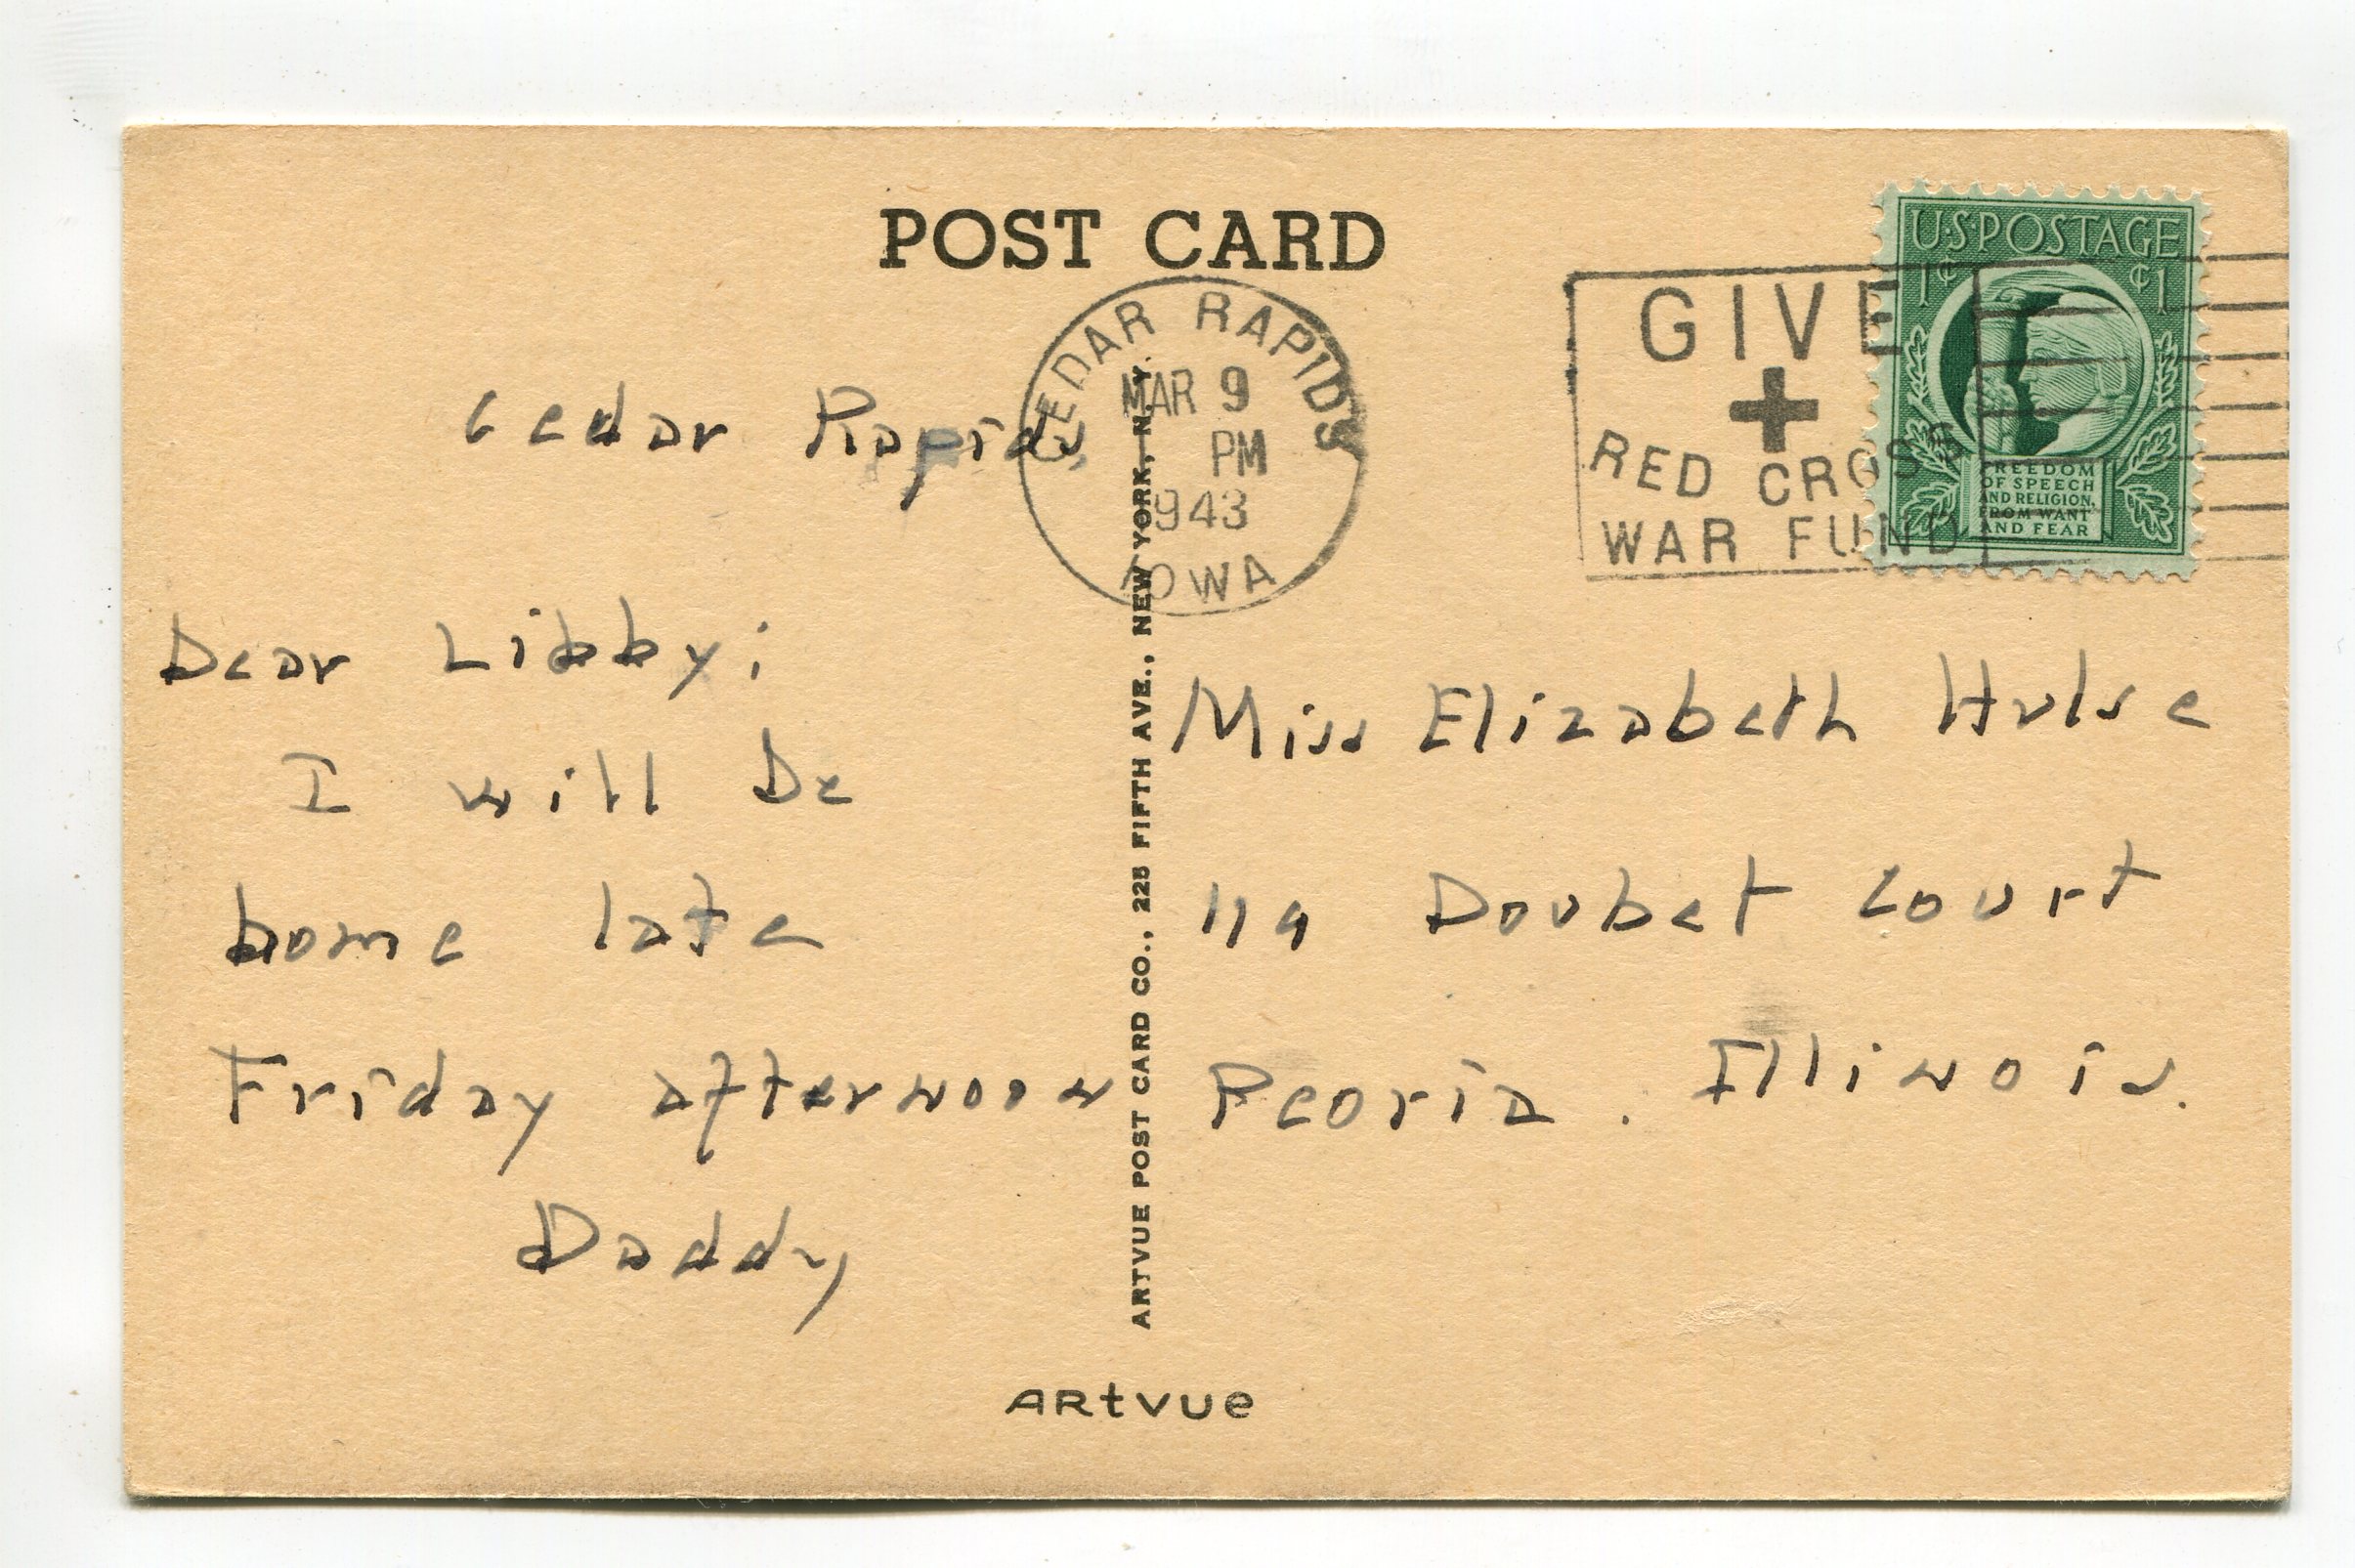 POST CARD
U.S.POSTAGE
1¢ ¢1
FREEDOM
OF SPEECH
AND RELIGION,
FROM WANT
AND FEAR
GIVE
RED CROSS
WAR FUND
CEDAR RAPIDS
MAR 9
PM
1943
IOWA
Cedar Rapids
Dear Libby:
I will be
home late
Friday afternoon
Daddy
ARTVUE POST CARD CO., 225 FIFTH AVE., NEW YORK, N.Y.
Miss Elizabeth Hulse
119 Doubet Court
Peoria. Illinois.
ARtvue